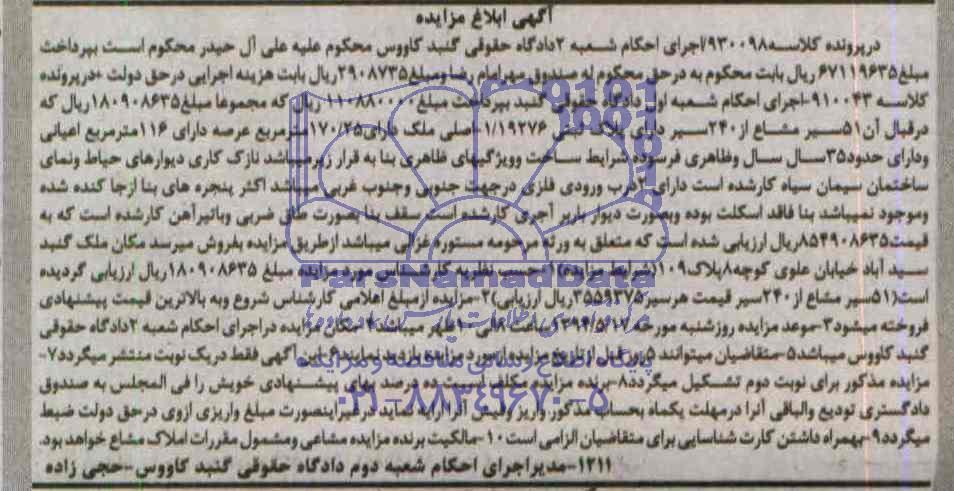 آگهی ابلاغ مزایده
درپرونده کلاسه۹۳۰۰۹۸/اجرای احکام شعبه ۲دادگاه حقوقی گنبد کاووس محکوم علیه علی آل حیدر محکوم است بپرداخت
مبلغ۶۷۱۱۹۶۳۵ ریال بابت محکوم به درحق محکوم له صندوق مهرامام رضا ومبلغ۲۹۰۸۷۳۵ریال بابت هزینه اجرایی درحق دولت +درپرونده
کلاسه ۹۱۰۰۴۳-اجرای احکام شعبه اول دادگاه حقوقی گنبد بپرداخت مبلغ۱۱۰۸۸۰۰۰۰ ریال که مجموعا مبلغ۱۸۰۹۰۸۶۳۵ریال که
درقبال آن۵۱سیر مشاع از۲۴۰سیر دارای پلاک ثبتی ۱/۱۹۲۷۶-اصلی ملک دارای۱۷۰/۲۵مترمربع عرصه دارای ۱۱۶مترمربع اعیانی
ودارای حدود۳۵سال سال وظاهری فرسوده شرایط ساخت وویژگیهای ظاهری بنا به قرار زیرمیباشد نازک کاری دیوارهای حیاط ونمای
ساختمان سیمان سیاه کارشده است دارای ۲درب ورودی فلزی درجهت جنوبی وجنوب غربی میباشد اکثر پنجره های بنا ازجا کنده شده
وموجود نمیباشد بنا فاقد اسکلت بوده وبصورت دیوار باربر آجری کارشده است سقف بنا بصورت طاق ضربی وباتیرآهن کارشده است که به
قیمت۸۵۴۹۰۸۶۳۵ریال ارزیابی شده است که متعلق به ورثه مرحومه مستوره غزالی میباشد ازطریق مزایده بفروش میرسد مکان ملک گنبد
سید آباد خیابان علوی کوچه۸پلاک۱۰۹(شرایط مزایده)۱-حسب نظریه کارشناس مورد مزایده مبلغ ۱۸۰۹۰۸۶۳۵ریال ارزیابی گردیده
است(۵۱سیر مشاع از۲۴۰سیر قیمت هرسیر۳۵۵۹۳۷۵ریال ارزیابی)۲-مزایده ازمبلغ اعلامی کارشناس شروع وبه بالاترین قیمت پیشنهادی
فروخته میشود۳-موعد مزایده روزشنبه مورخه ۱۳۹۴/۵/۱۷ساعت۹الی۱۰ظهر میباشد۴-مکان مزایده دراجرای احکام شعبه ۲دادگاه حقوقی
گنبد کاووس میباشد۵-متقاضیان میتوانند ۵روز قبل از تاریخ مزایده ازمورد مزایده بازدید نمایند۶-این آگهی فقط دریک نوبت منتشر میگردد۷-
مزایده مذکور برای نوبت دوم تشکیل میگردد۸-برنده مزایده مکلف است ده درصد بهای پیشنهادی خویش را فی المجلس به صندوق
دادگستری تودیع والباقی آنرا درمهلت یکماه بحساب مذکور واریز وفیش آنرا ارائه نماید درغیراینصورت مبلغ واریزی ازوی درحق دولت ضبط
میگردد۹-بهمراه داشتن کارت شناسایی برای متقاضیان الزامی است۱۰-مالکیت برنده مزایده مشاعی ومشمول مقررات املاک مشاع خواهد بود.
۱۲۱۱-مدیراجرای احکام شعبه دوم دادگاه حقوقی گنبد کاووس-حجی زاده
ParsNamadData
پایگاه اطلاع رسانی مناقصه و مزایده
۰۲۱-۸۸۳۴۹۶۷۰-۵